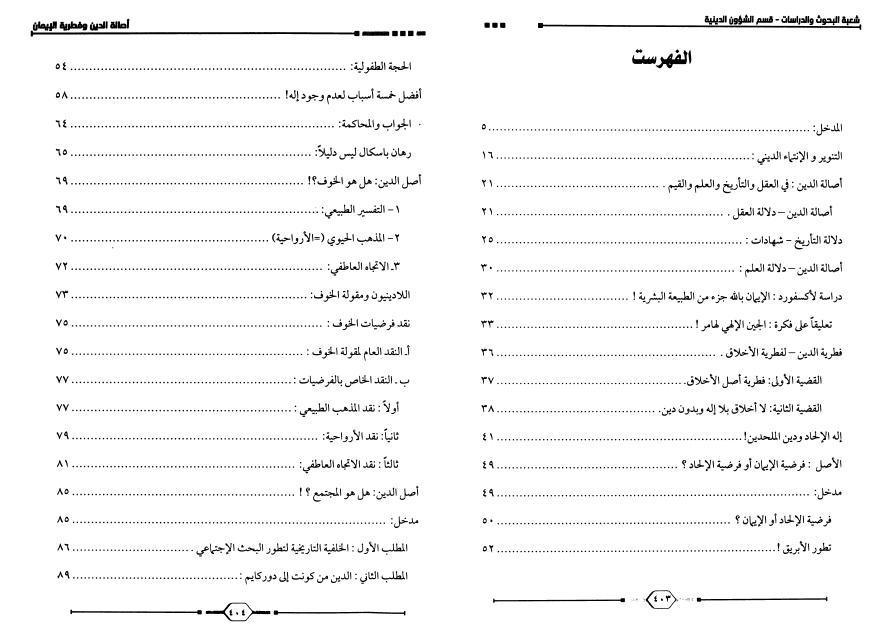 شعبة البحوث والدراسات - قسم الشؤون الدينية
الفهرست
المدخل: ٥
التنوير و الإنتماء الديني : ١٦
أصالة الدين : في العقل والتأريخ والعلم والقيم . ٢١
أصالة الدين – دلالة العقل . ٢١
دلالة التأريخ – شهادات : ٢٥
أصالة الدين – دلالة العلم : ٣٠
دراسة لأكسفورد : الإيمان بالله جزء من الطبيعة البشرية ! ٣٢
تعليقاً على فكرة : الجين الإلهي لهامر ! ٣٣
فطرية الدين – لفطرية الأخلاق . ٣٦
القضية الأولى: فطرية أصل الأخلاق. ٣٧
القضية الثانية: لا أخلاق بلا إله وبدون دين. ٣٨
إله الإلحاد ودين الملحدين! ٤١
الأصل : فرضية الإيمان أو فرضية الإلحاد ؟ ٤٩
مدخل: ٤٩
فرضية الإلحاد أو الإيمان ؟ ٥٠
تطور الأبريق ! ٥٢
٤٠٣
أصالة الدين وفطرية الإيمان
الحجة الطفولية: ٥٤
أفضل خمسة أسباب لعدم وجود إله! ٥٨
الجواب والمحاكمة: ٦٤
رهان باسكال ليس دليلاً: ٦٥
أصل الدين: هل هو الخوف؟! ٦٩
١- التفسير الطبيعي: ٦٩
٢- المذهب الحيوي (=الأرواحية) ٧٠
٣ـ الاتجاه العاطفي: ٧٢
اللادينيون ومقولة الخوف: ٧٣
نقد فرضيات الخوف : ٧٥
أـ النقد العام لمقولة الخوف : ٧٥
ب ـ النقد الخاص بالفرضيات : ٧٧
أولاً : نقد المذهب الطبيعي : ٧٧
ثانياً: نقد الأرواحية: ٧٩
ثالثاً : نقد الاتجاه العاطفي: ٨١
أصل الدين: هل هو المجتمع ؟ ! ٨٥
مدخل: ٨٥
المطلب الأول : الخلفية التاريخية لتطور البحث الإجتماعي . ٨٦
المطلب الثاني : الدين من كونت إلى دوركايم : ٨٩
٤٠٤